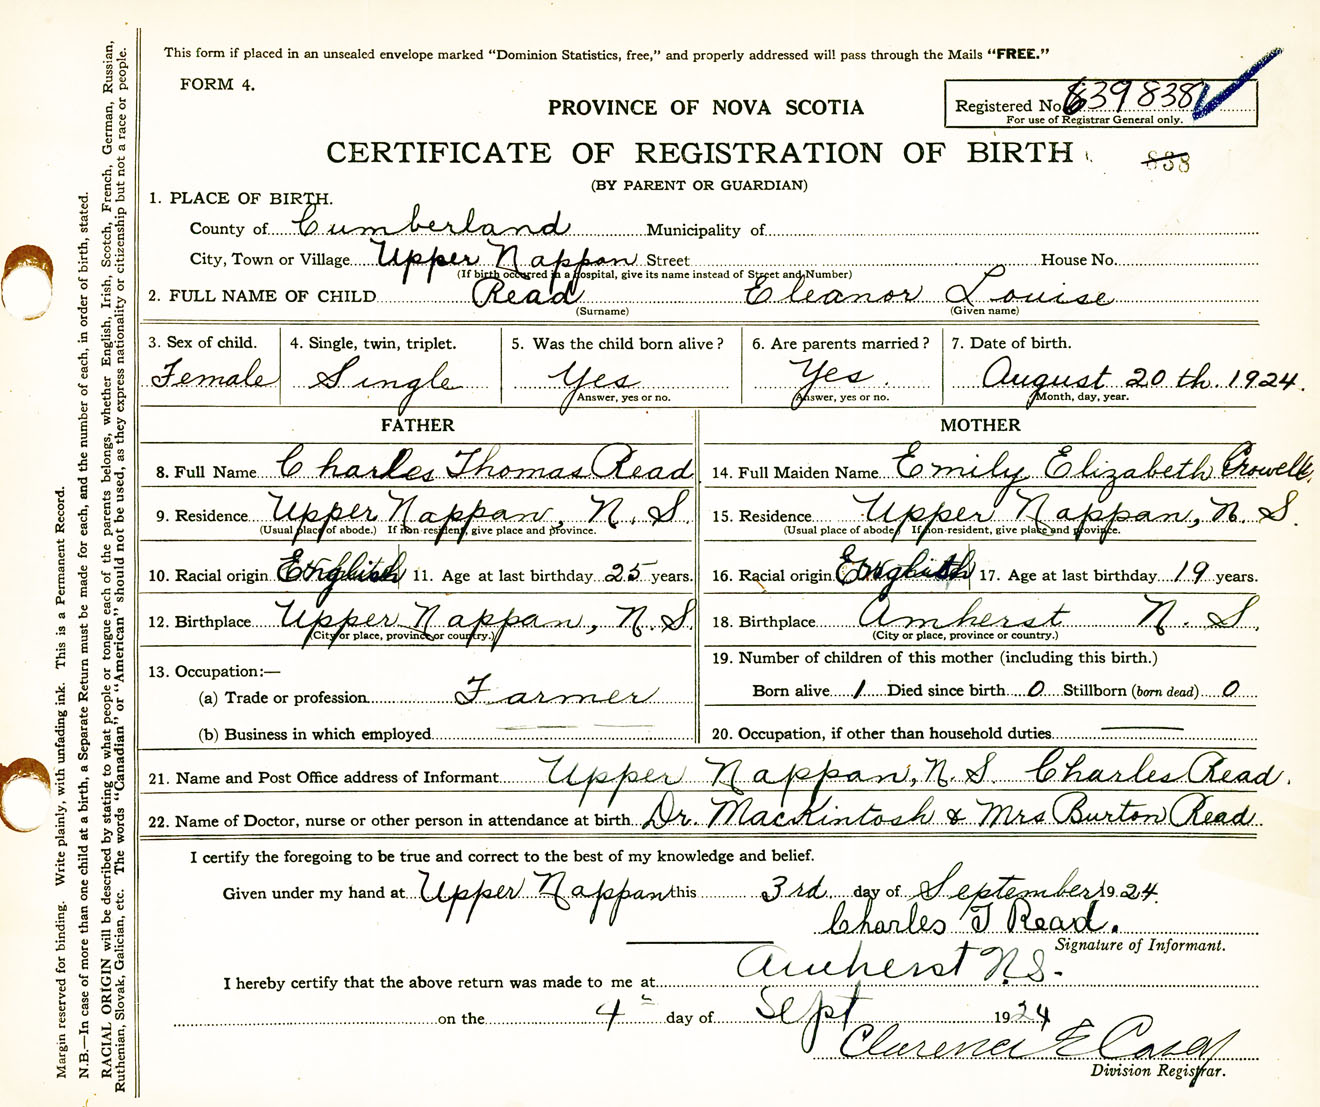 This form if placed in an unsealed envelope marked “Dominion Statistics, free,” and properly addressed will pass through the Mails “FREE.”
FORM 4.
PROVINCE OF NOVA SCOTIA
Registered No. 639838
For use of Registrar General only.
CERTIFICATE OF REGISTRATION OF BIRTH
838
(BY PARENT OR GUARDIAN)
1. PLACE OF BIRTH.
County of Cumberland Municipality of
City, Town or Village Upper Nappan Street House No.
(If birth occurred in a hospital, give its name instead of Street and Number)
2. FULL NAME OF CHILD Read Eleanor Louise
(Surname) (Given name)
3. Sex of child. 4. Single, twin, triplet. 5. Was the child born alive? 6. Are parents married? 7. Date of birth.
Female Single Yes Yes. August 20th. 1924.
Answer, yes or no. Answer, yes or no. Month, day, year.
FATHER MOTHER
8. Full Name Charles Thomas Read 14. Full Maiden Name Emily Elizabeth Crowell.
9. Residence Upper Nappan, N. S. 15. Residence Upper Nappan, N. S.
(Usual place of abode.) If non-resident, give place and province. (Usual place of abode) If non-resident, give place and province.
10. Racial origin English 11. Age at last birthday 25 years. 16. Racial origin English 17. Age at last birthday 19 years.
12. Birthplace Upper Nappan, N. S. 18. Birthplace Amherst N. S.
(City or place, province or country.) (City or place, province or country.)
13. Occupation:— 19. Number of children of this mother (including this birth.)
(a) Trade or profession Farmer Born alive 1 Died since birth 0 Stillborn (born dead) 0
(b) Business in which employed 20. Occupation, if other than household duties
21. Name and Post Office address of Informant Upper Nappan, N. S. Charles Read.
22. Name of Doctor, nurse or other person in attendance at birth Dr. MacKintosh & Mrs Burton Read.
I certify the foregoing to be true and correct to the best of my knowledge and belief.
Given under my hand at Upper Nappan this 3rd day of September 1924.
Charles T Read.
Signature of Informant.
I hereby certify that the above return was made to me at Amherst N.S.
on the 4th day of Sept 1924
Clarence E Casey
Division Registrar.
Margin reserved for binding. Write plainly, with unfading ink. This is a Permanent Record.
N.B.—In case of more than one child at a birth, a Separate Return must be made for each, and the number of each, in order of birth, stated.
RACIAL ORIGIN will be described by stating to what people or tongue each of the parents belongs, whether English, Irish, Scotch, French, German, Russian,
Ruthenian, Slovak, Galician, etc. The words “Canadian” or “American” should not be used, as they express nationality or citizenship but not a race or people.